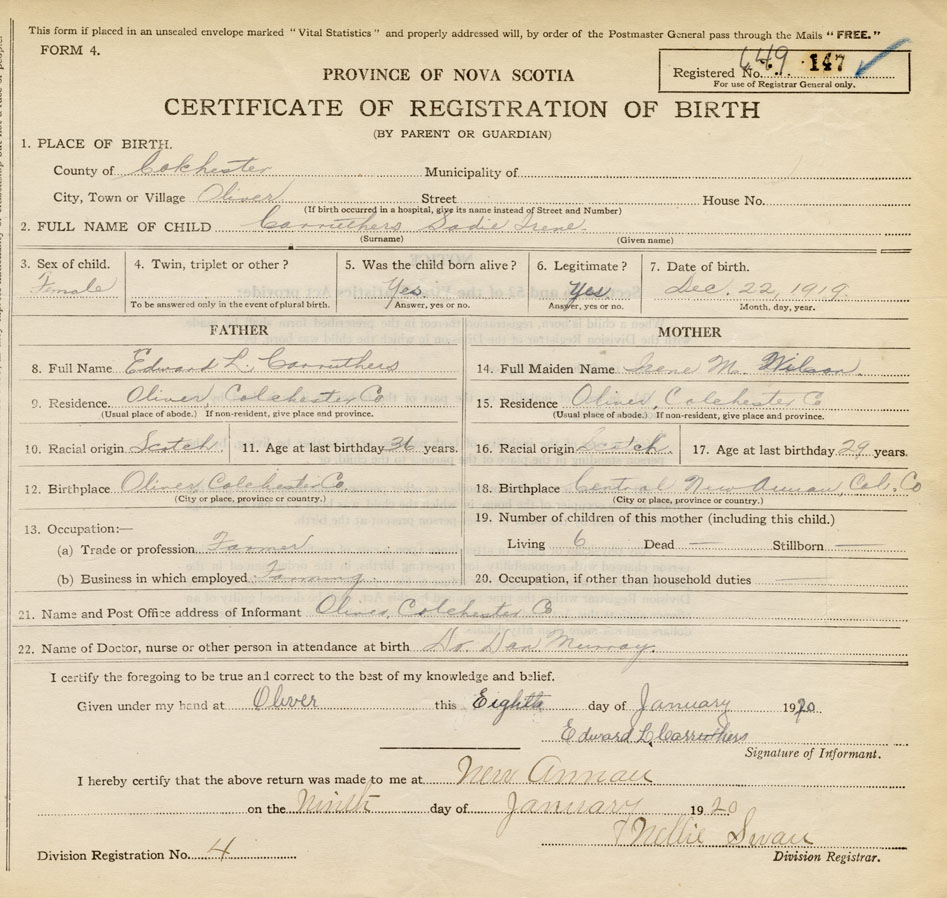 This form if placed in an unsealed envelope marked "Vital Statistics" and properly addressed will, by order of the Postmaster General pass through the Mails "FREE."
FORM 4.
Registered No. 449 147
For use of Registrar General only.
PROVINCE OF NOVA SCOTIA
CERTIFICATE OF REGISTRATION OF BIRTH
(BY PARENT OR GUARDIAN)
1. PLACE OF BIRTH.
County of Colchester Municipality of
City, Town or Village Oliver Street House No.
(If birth occurred in a hospital, give its name instead of Street and Number)
2. FULL NAME OF CHILD Carruthers Sadie Irene.
(Surname) (Given name)
3. Sex of child. 4. Twin, triplet or other? 5. Was the child born alive? 6. Legitimate? 7. Date of birth.
Female Yes. Yes Dec. 22, 1919.
To be answered only in the event of plural birth. Answer, yes or no. Answer, yes or no. Month, day, year.
FATHER MOTHER
8. Full Name Edward L. Carruthers 14. Full Maiden Name Irene M. Wilson.
9. Residence. Oliver, Colchester Co 15. Residence Oliver, Colchester Co
(Usual place of abode.) If non-resident, give place and province. (Usual place of abode.) If non-resident, give place and province.
10. Racial origin Scotch 11. Age at last birthday 36 years. 16. Racial origin Scotch 17. Age at last birthday 29 years.
12. Birthplace Oliver, Colchester Co. 18. Birthplace Central New Annan, Col. Co
(City or place, province or country.) (City or place, province or country.)
13. Occupation:— 19. Number of children of this mother (including this child.)
(a) Trade or profession Farmer Living 6 Dead — Stillborn —
(b) Business in which employed. Farming. 20. Occupation, if other than household duties —
21. Name and Post Office address of Informant Oliver, Colchester Co
22. Name of Doctor, nurse or other person in attendance at birth Dr. Dan Murray.
I certify the foregoing to be true and correct to the best of my knowledge and belief.
Given under my hand at Oliver this Eighth day of January 1920.
Edward L. Carruthers
Signature of Informant.
I hereby certify that the above return was made to me at New Annan
on the Ninth day of January 1920
Nellie Swan
Division Registration No. 4 Division Registrar.